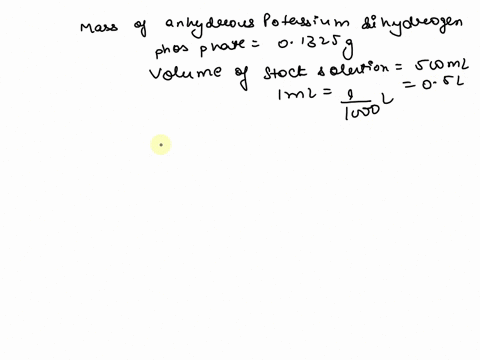 Mass of anhydreous Potassium dihydrogen
phosphate = 0.1325g
Volume of stock solution = 500mL
1mL = 1/1000 L = 0.5L